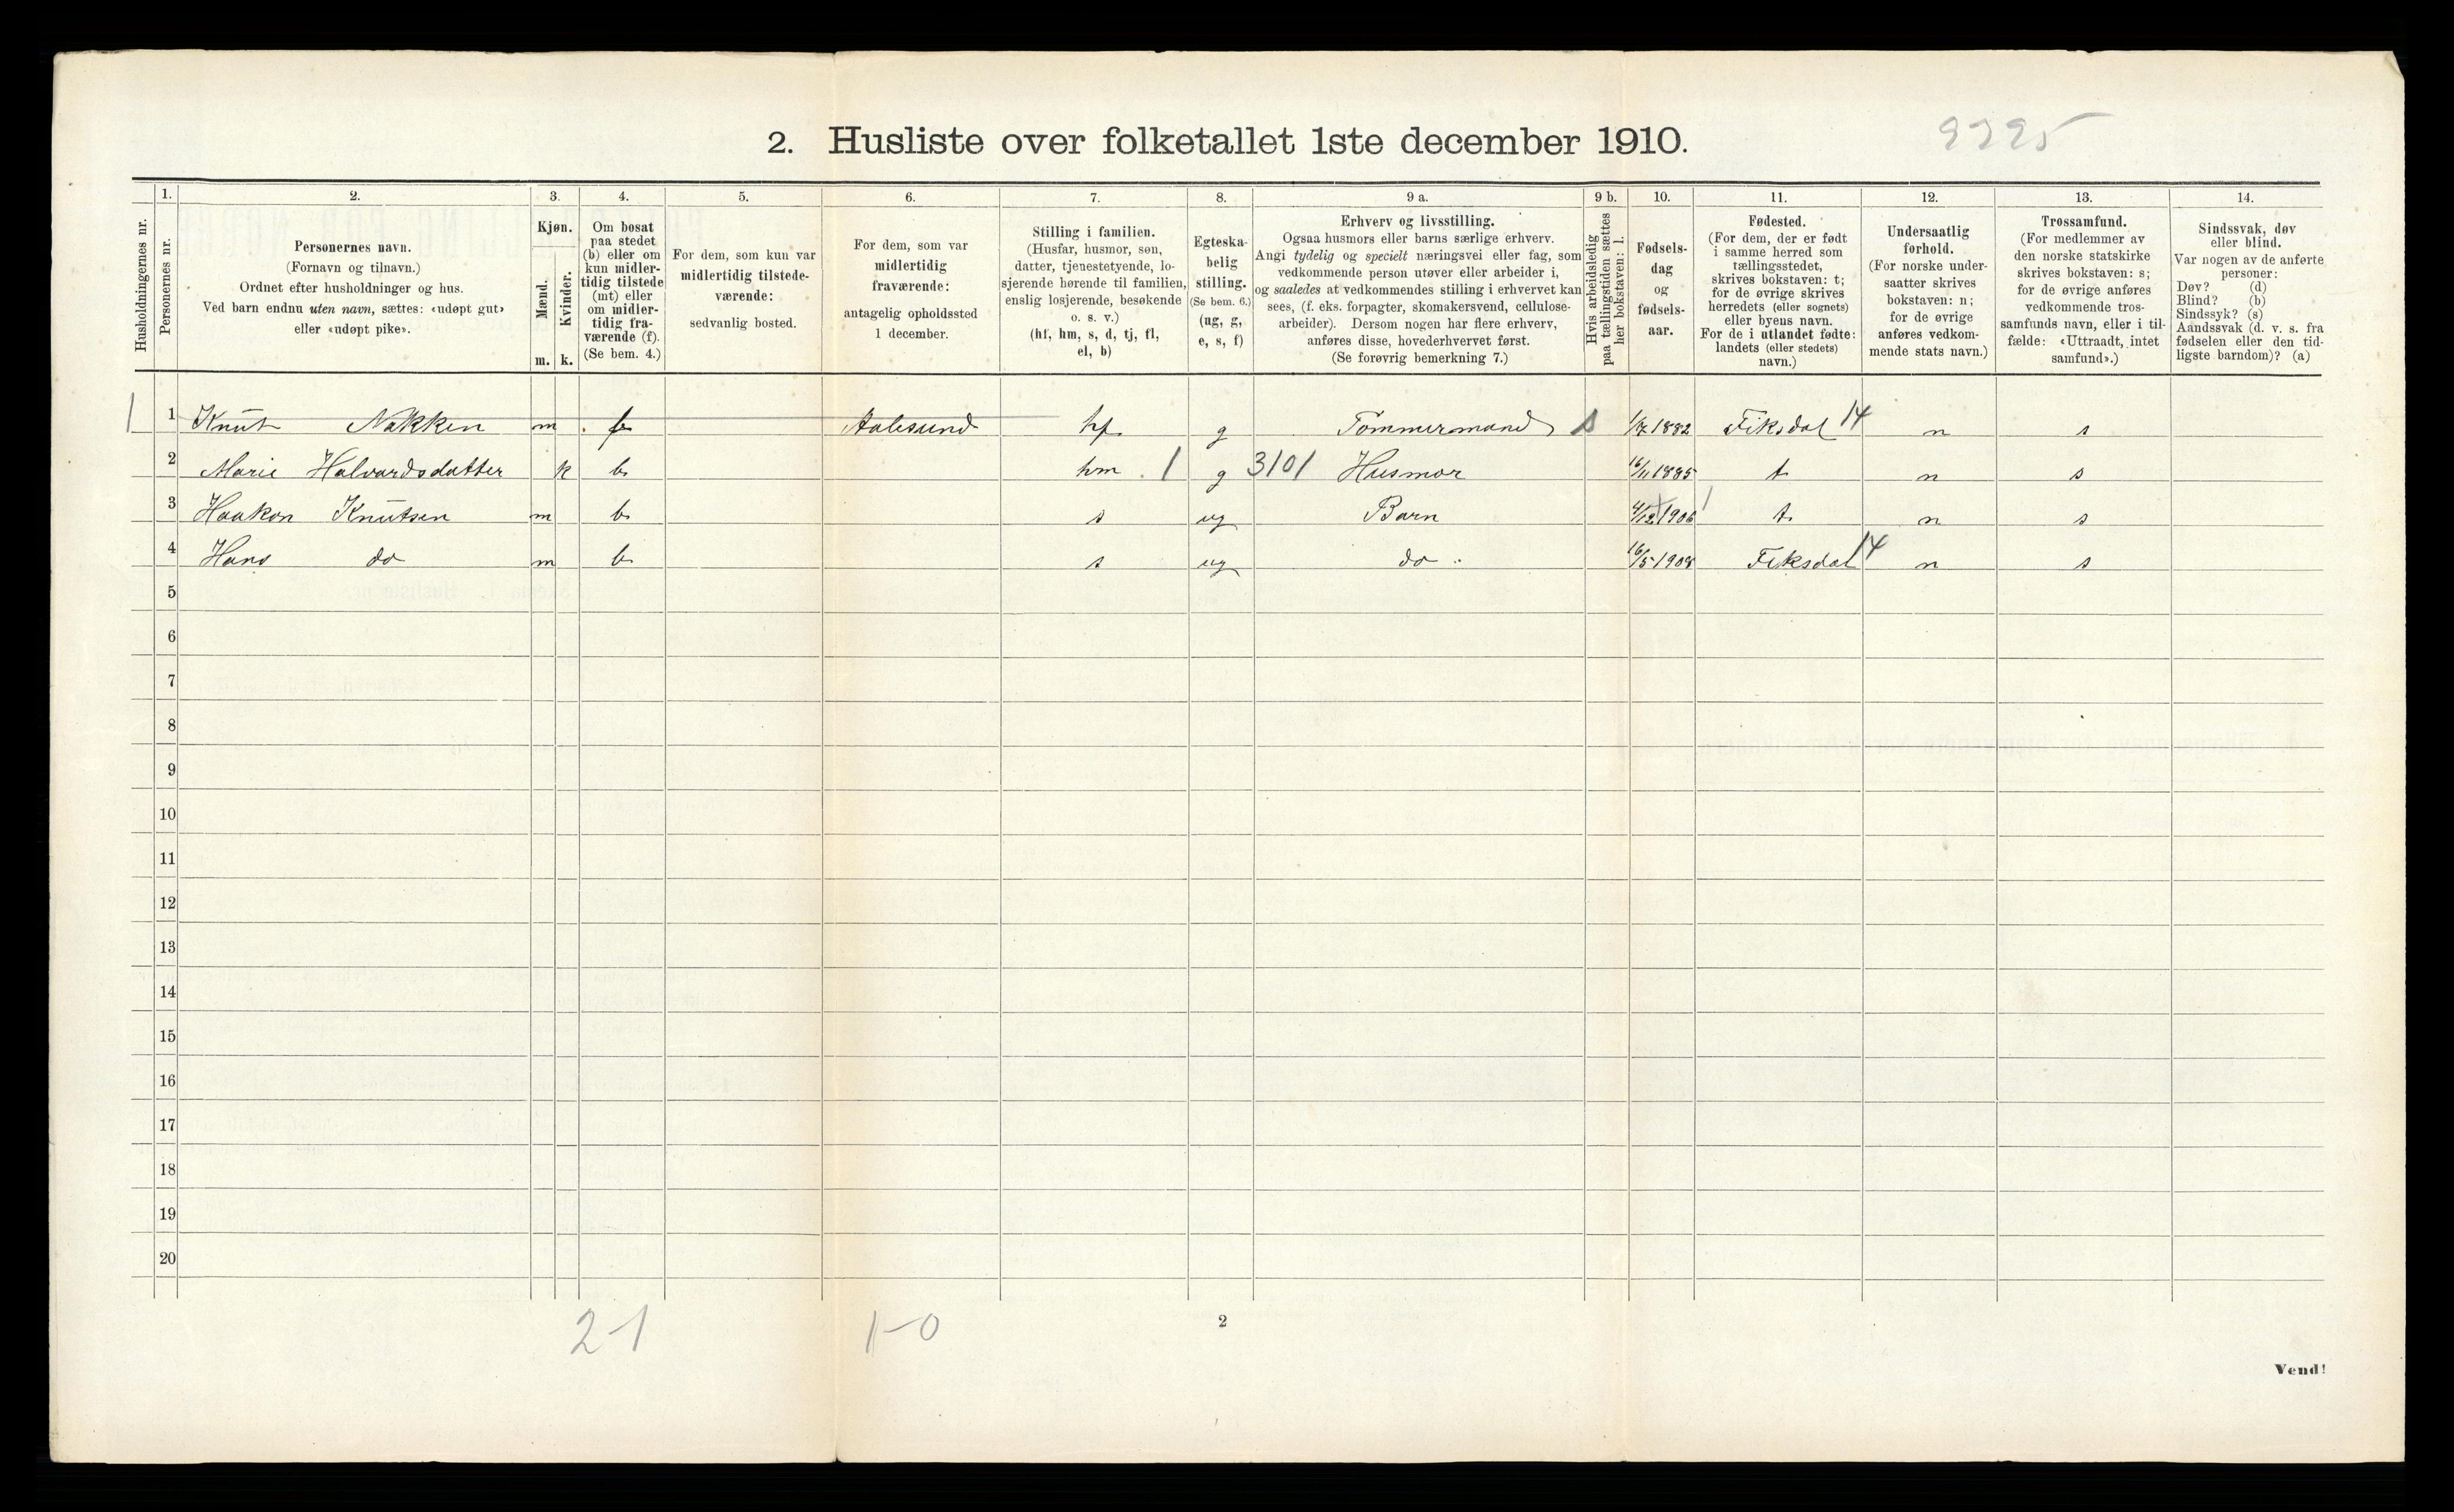 2. Husliste over folketallet 1ste december 1910.
9725
Husholdningernes nr.
1.
Personernes nr.
2.
Personernes navn.
(Fornavn og tilnavn.)
Ordnet efter husholdninger og hus.
Ved barn endnu uten navn, sættes: «udøpt gut»
eller «udøpt pike».
3.
Kjøn.
Mænd.
Kvinder.
m. k.
4.
Om bosat
paa stedet
(b) eller om
kun midler-
tidig tilstede
(mt) eller
om midler-
tidig fra-
værende (f).
(Se bem. 4.)
5.
For dem, som kun var
midlertidig tilstede-
værende:
sedvanlig bosted.
6.
For dem, som var
midlertidig
fraværende:
antagelig opholdssted
1 december.
7.
Stilling i familien.
(Husfar, husmor, søn,
datter, tjenestetyende, lo-
sjerende hørende til familien,
enslig losjerende, besøkende
o. s. v.)
(hf, hm, s, d, tj, fl,
el, b)
8.
Egteska-
belig
stilling.
(Se bem. 6.)
(ug, g,
e, s, f)
9 a.
Erhverv og livsstilling.
Ogsaa husmors eller barns særlige erhverv.
Angi tydelig og specielt næringsvei eller fag, som
vedkommende person utøver eller arbeider i,
og saaledes at vedkommendes stilling i erhvervet kan
sees, (f. eks. forpagter, skomakersvend, cellulose-
arbeider). Dersom nogen har flere erhverv,
anføres disse, hovederhvervet først.
(Se forøvrig bemerkning 7.)
9 b.
Hvis arbeidsledig
paa tællingstiden sættes
her bokstaven: l.
10.
Fødsels-
dag
og
fødsels-
aar.
11.
Fødested.
(For dem, der er født
i samme herred som
tællingsstedet,
skrives bokstaven: t;
for de øvrige skrives
herredets (eller sognets)
eller byens navn.
For de i utlandet fødte:
landets (eller stedets)
navn.)
12.
Undersaatlig
forhold.
(For norske under-
saatter skrives
bokstaven: n;
for de øvrige
anføres vedkom-
mende stats navn.)
13.
Trossamfund.
(For medlemmer av
den norske statskirke
skrives bokstaven: s;
for de øvrige anføres
vedkommende tros-
samfunds navn, eller i til-
fælde: «Uttraadt, intet
samfund».)
14.
Sindssvak, døv
eller blind.
Var nogen av de anførte
personer:
Døv? (d)
Blind? (b)
Sindssyk? (s)
Aandssvak (d. v. s. fra
fødselen eller den tid-
ligste barndom)? (a)
1 1 Knut Nakken m f Aalesund hf g Tømmermand s 1/7 1882 Fiksdal 14 n s
2 Marie Halvardsdatter k b hm 1 g 3101 Husmor 16/11 1885 t n s
3 Haakon Knutsen m b s ug Barn 4/12 1906 1 t n s
4 Hans do m b s ug do 16/5 1908 Fiksdal 14 n s
5
6
7
8
9
10
11
12
13
14
15
16
17
18
19
20
2-1 1-0
2
Vend!